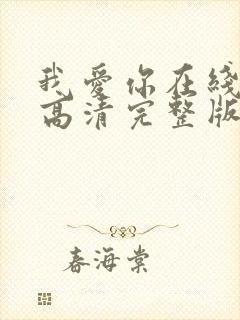 我爱你在线
高清完整版
春海棠